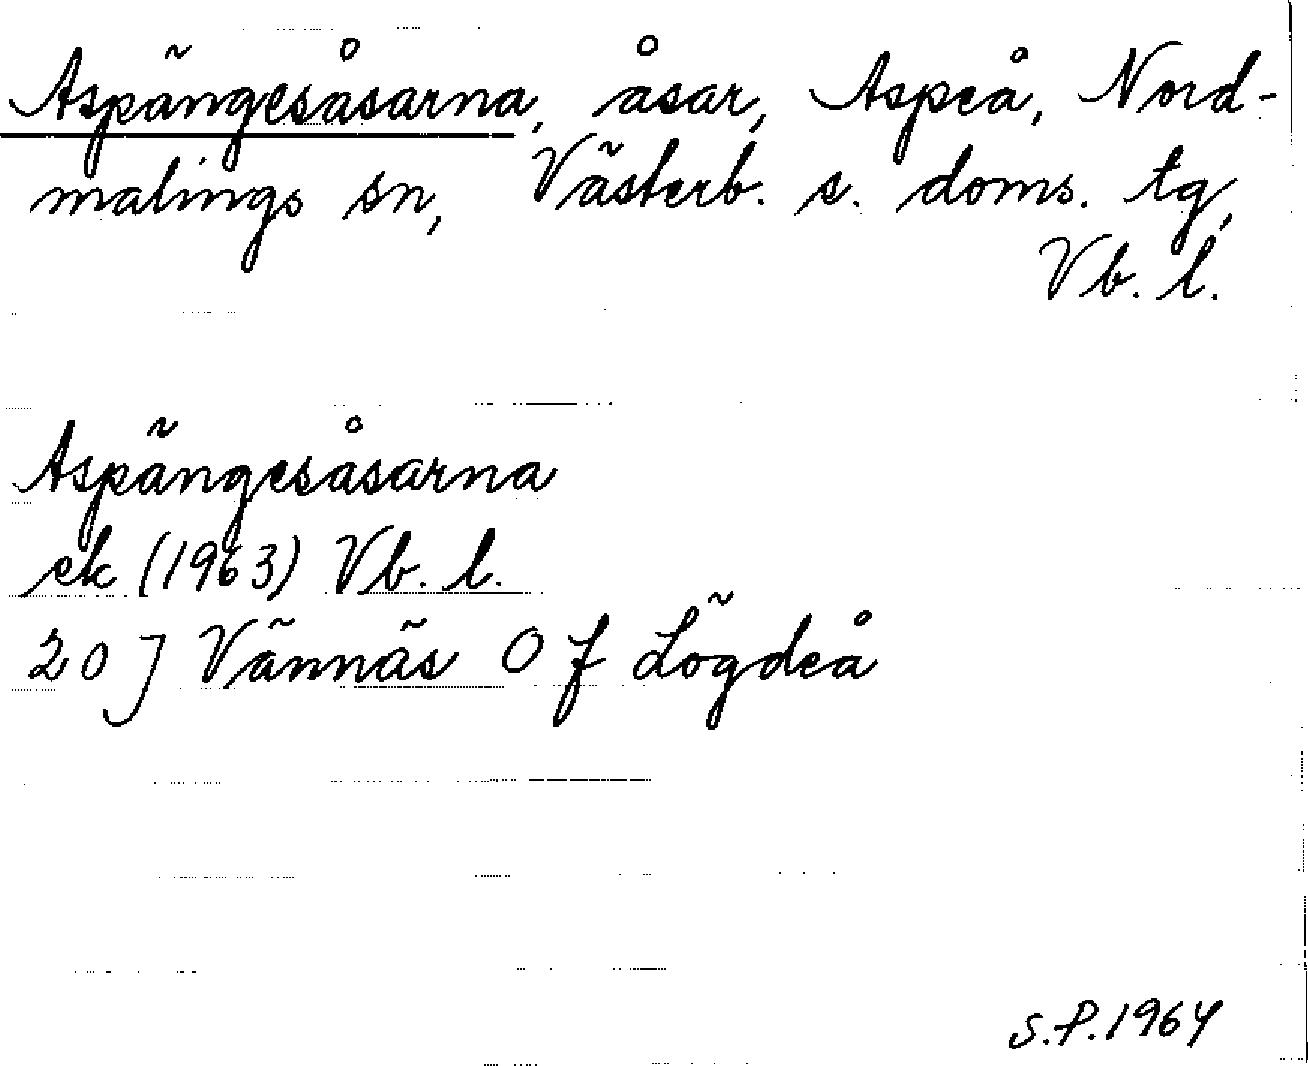 Aspängesåsarna, åsar, Aspeå, Nord-
malings sn, Västerb. s. doms. tg,
Vb. l.
Aspängesåsarna
ek (1963) Vb. l.
20 J Vännäs 0 f Lögdeå
S.P. 1964